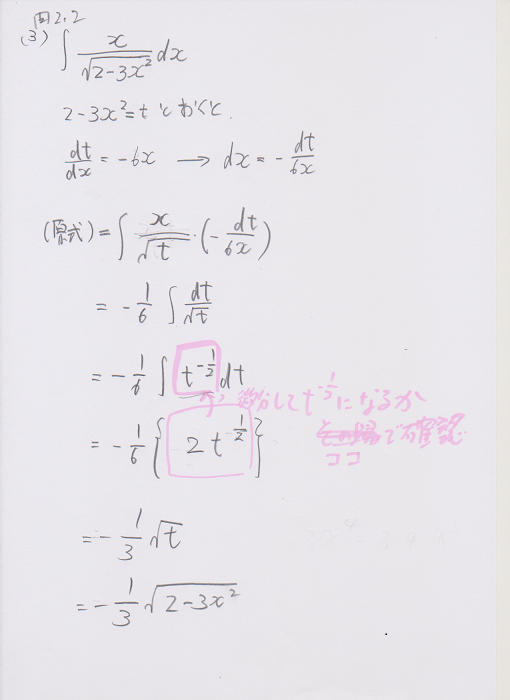 問2.2
(3) ∫ x/√(2-3x²) dx
2-3x²=t とおくと.
dt/dx = -6x → dx = - dt/6x
(原式) = ∫ x/√t · (- dt/6x)
= - 1/6 ∫ dt/√t
= - 1/6 ∫ t^(-1/2) dt
微分して t^(-1/2) になるか
= - 1/6 { 2 t^(-1/2) }
で確認
ココ
= - 1/3 √t
= - 1/3 √(2-3x²)